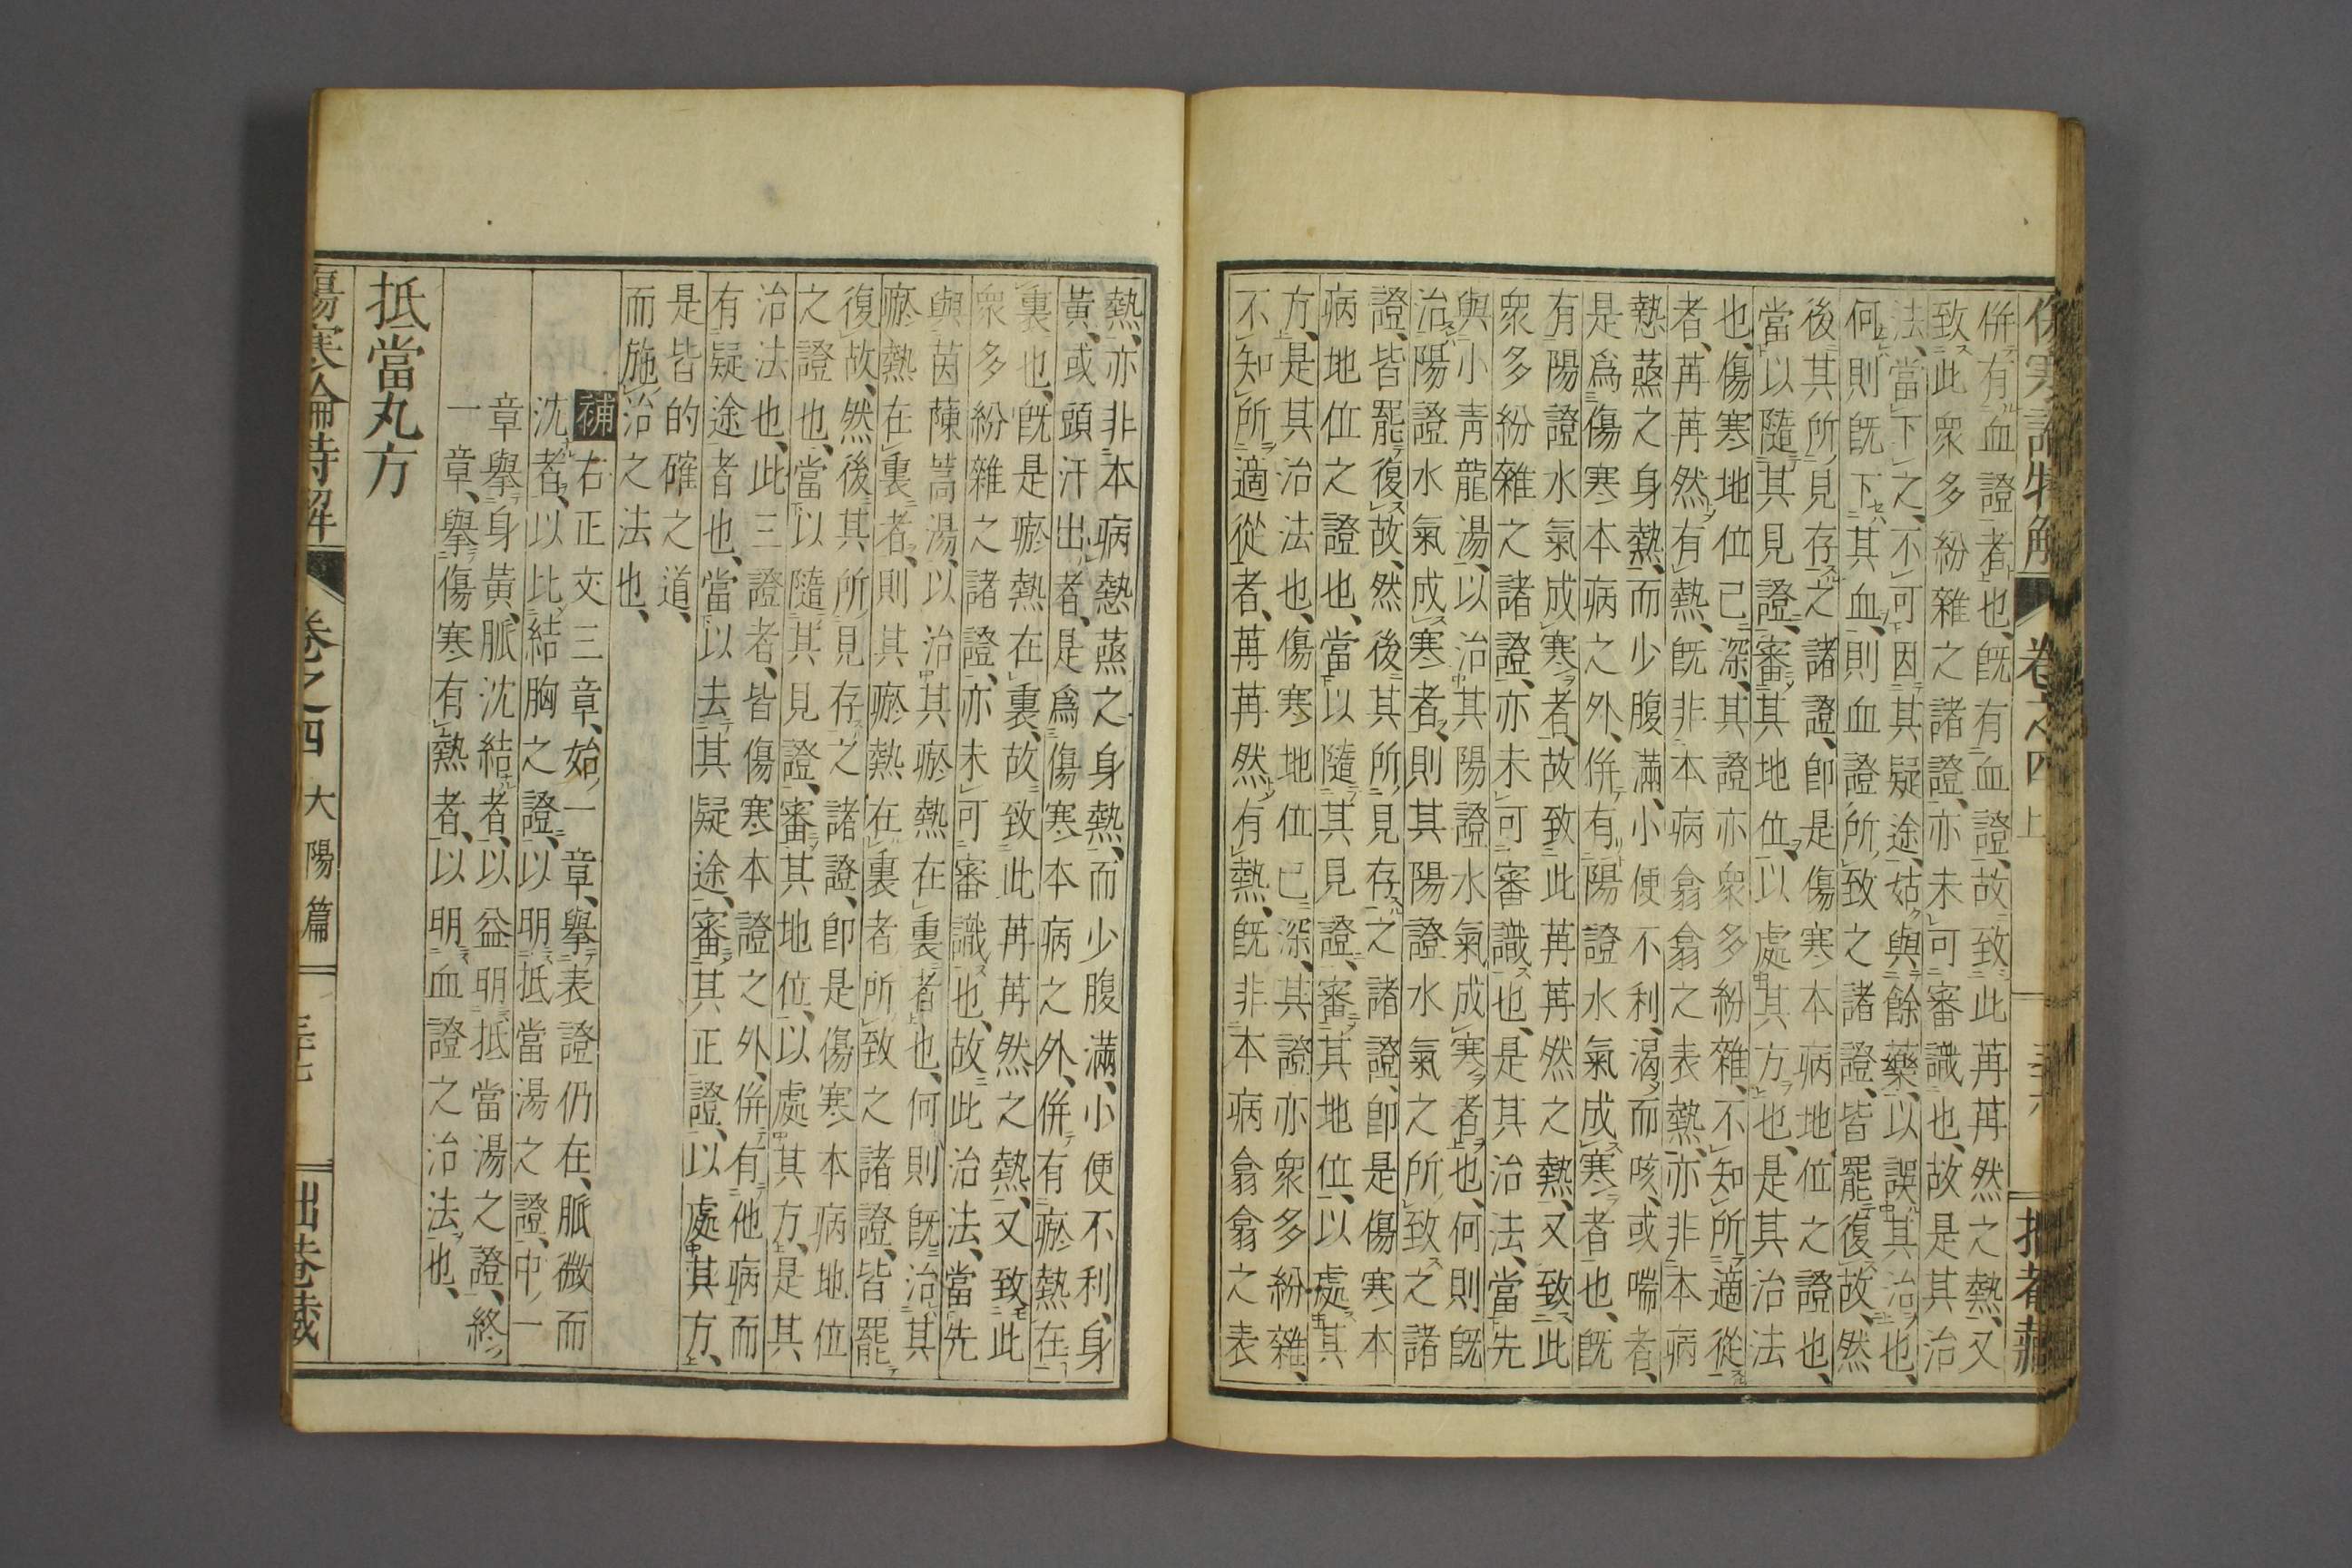 傷寒論特解 卷之四上 三十六
併有血證者也、既有血證、故致此苒苒然之熱、又
致此衆多紛雜之諸證、亦未可審識也、故是其治
法、當下之、不可因其疑途、姑與餘藥、以誤其治也、
何則既下其血、則血證所致之諸證、皆罷復故、然
後其所見存之諸證、卽是傷寒本病地位之證也、
當以隨其見證、審其地位、以處其方也、是其治法
也、傷寒地位已深、其證亦衆多紛雜、不知所適從
者、苒苒然有熱、既非本病翕翕之表熱、亦非本病
熱蒸之身熱、而少腹滿、小便不利、渴而咳、或喘者、
是爲傷寒本病之外、併有陽證水氣成寒者也、既
有陽證水氣成寒者、故致此苒苒然之熱、又致此
衆多紛雜之諸證、亦未可審識也、是其治法、當先
與小靑龍湯、以治其陽證水氣成寒者也、何則既
治陽證水氣成寒者、則其陽證水氣之所致之諸
證、皆罷復故、然後其所見存之諸證、卽是傷寒本
病地位之證也、當以隨其見證、審其地位、以處其
方、是其治法也、傷寒地位已深、其證亦衆多紛雜、
不知所適從者、苒苒然有熱、既非本病翕翕之表
熱、亦非本病熱蒸之身熱、而少腹滿、小便不利、身
黃、或頭汗出者、是爲傷寒本病之外、併有瘀熱在
裏也、既是瘀熱在裏、故致此苒苒然之熱、又致此
衆多紛雜之諸證、亦未可審識也、故此治法、當先
與茵蔯蒿湯、以治其瘀熱在裏者也、何則既治其
瘀熱在裏者、則其瘀熱在裏者所致之諸證、皆罷
復故、然後其所見存之諸證、卽是傷寒本病地位
之證也、當以隨其見證、審其地位、以處其方、是其
治法也、此三證者、皆傷寒本證之外、併有他病而
有疑途者也、當以去其疑途、審其正證、以處其方、
是皆的確之道、
而施治之法也、
補右正文三章、始一章、擧表證仍在、脈微而
沈者、以比結胸之證、以明抵當湯之證、中一
章擧身黃、脈沈結者、以益明抵當湯之證、終
一章、擧傷寒有熱者、以明血證之治法也、
抵當丸方
傷寒論特解 卷之四 大陽篇 三十七